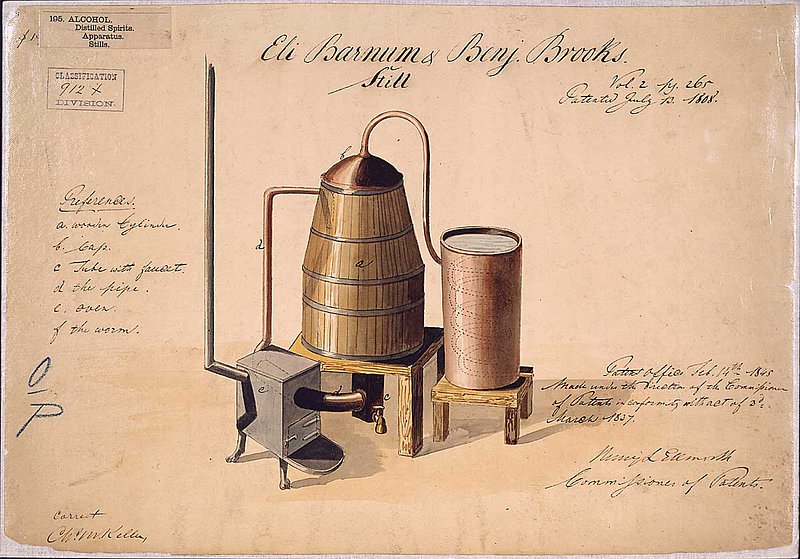 195. ALCOHOL.
Distilled Spirits.
Apparatus.
Stills.
CLASSIFICATION
912 X
DIVISION.
Eli Barnum & Benj. Brooks.
Still
Vol. 2 pg. 265
Patented July 13. 1808.
References.
a. wooden Cylinder.
b. Cap.
c Tube with faucet.
d the pipe.
e. oven.
f the worm.
b
d
a
e
d
c
O
P
Patent Office Feb. 14th 1845
Made under the direction of the Commissioner
of Patents in conformity with act of 3d.
March 1837.
Henry L Ellsworth
Commissioner of Patents.
Correct